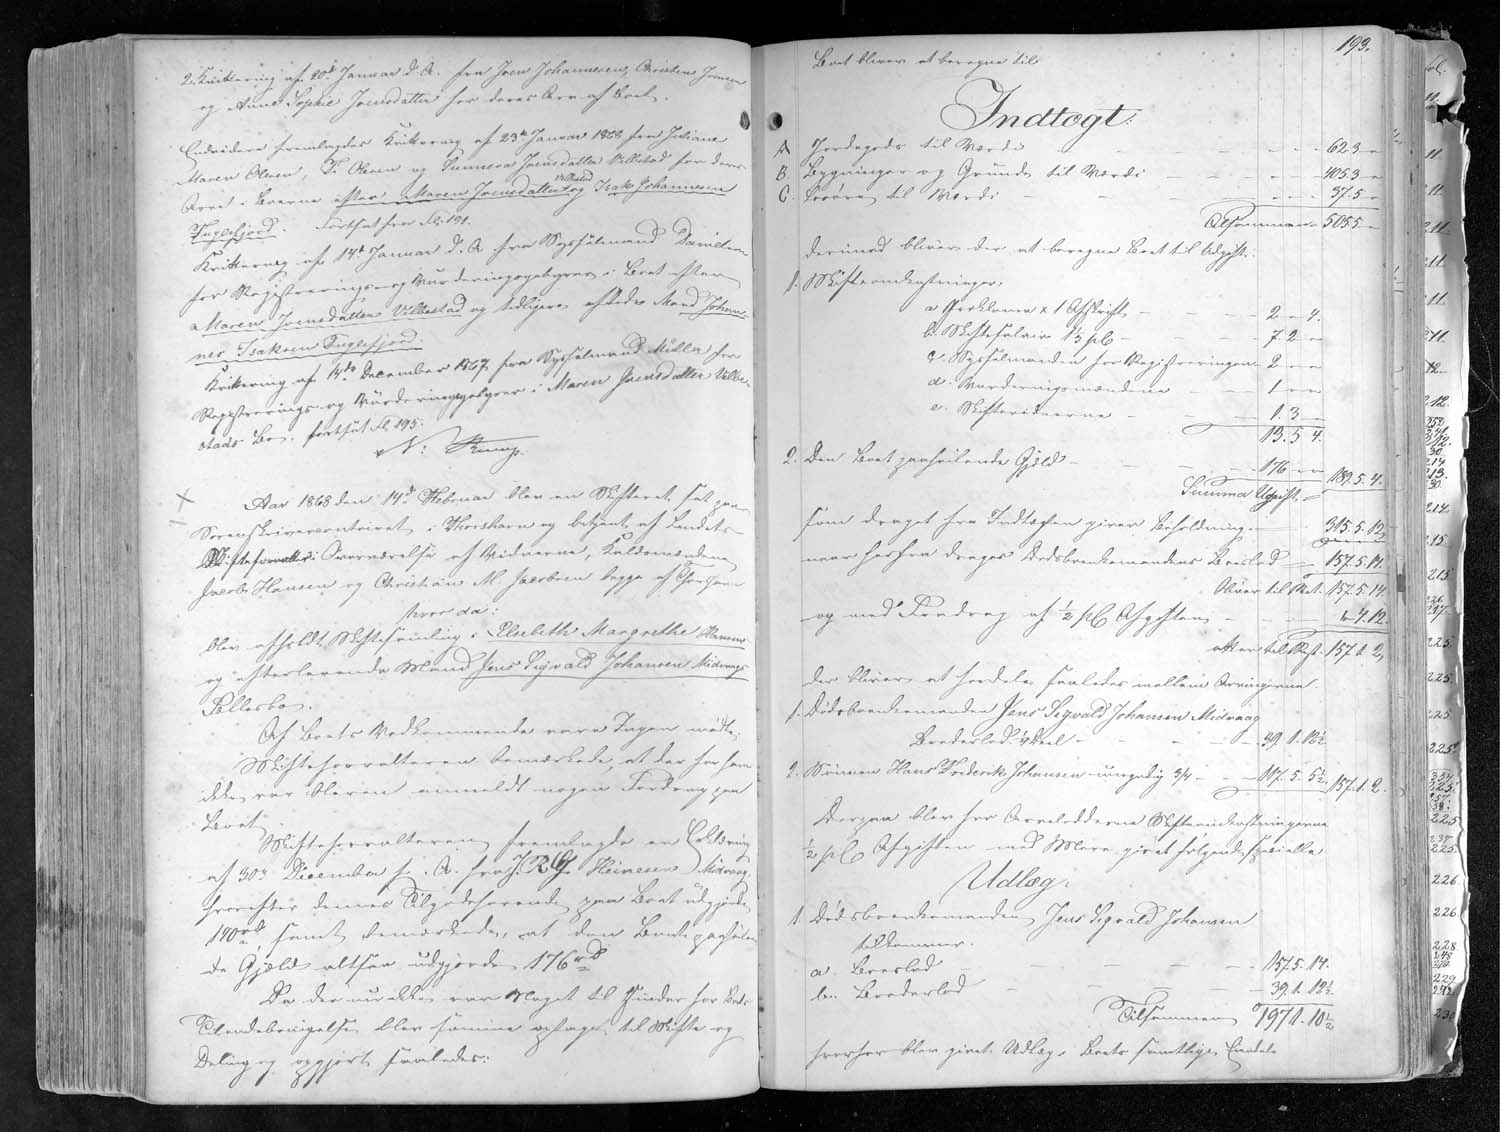 2. Kvittering af 20de Januar d. A. fra Joen Johannesen, Christens Joensen
og Anne Sophie Joensdatter for deres Arv af Boet.
Endvidere fremlagdes Kvittering af 23de Januar 1868 fra Juliane
Maren Olsen, T. Olesen og Sunneva Joensdatter Velbestad for deres
Arv i Boerne efter Maren Joensdatter Velbestad og Isak Johannesen
Fuglefjord. Fortsat fra fol. 191.
Kvittering af 14de Januar d. A. fra Sysselmand Danielsen
for Registrerings- og Vurderingsgebyrer i Boet efter
Maren Joensdatter Velbestad og tidligere afdøde Mand Johan-
nes Isaksen Fuglefjord.
Kvittering af 14de December 1867 fra Sysselmand Müller for
Registrerings- og Vurderingsgebyrer i Maren Joensdatter Velbe-
stads Bo. fortsat fol. 195.
Aar 1868 den 14de Februar blev en Skifteret sat paa
Sorenskrivercontoiret i Thorshavn og betjent af Landets
Skifteforvalter i Overværelse af Vidnerne, Kaldsmændene
Jacob Hansen og Christian M. Jacobsen begge af Thorshavn
hvor da:
blev afholdt Skiftesamling i Elsebeth Margrethe Hansens
og efterlevende Mand Jens Sigvald Johansen Midvaags
Fællesbo.
Af Boets Vedkommende vare Ingen mødte.
Skifteforvalteren bemærkede, at der for ham
ikke var bleven anmeldt nogen Fordring paa
Boet.
Skifteforvalteren fremlagde en Erklæring
af 30te December f. A. fra J. R. G. Heinesen Midvaag
hvorefter dennes Tilgodehavende paa Boet udgjorde
140 rd samt bemærkede, at den Boet paahvilen-
de Gjæld altsaa udgjorde 176 rd
Da der nu ikke var Noget til Hinder for Boets
Tilendebringelse blev samme optaget til Skifte og
Deling og opgjort saaledes:
193.
Boet bliver at beregne til
Indtægt:
A Jordegods til Værdi 623 –
B. Bygninger og Grunde til Værdi 4053 –
C. Løsøre til Værdi 37.5 –
Tilsammen 505.5 –
derimod bliver der at beregne Boet til Udgift.
1. Skifteomkostninger,
a Proklamer x 1 Afskrift 2 – 4.
b. Skiftesalair 1½ pC 7 2 –
c. Sysselmanden for Registreringen 2 – –
d. Vurderingsmændene 1 – –
e. Skiftevidnerne 1. 3 –
13. 5 4.
2. Den Boet paahvilende Gjæld 176 – –
Summa Udgift 189. 5. 4.
som draget fra Indtægten giver Beholdning 315. 5. 12
naar herfra drages Dødsboenkemandens Boeslod 157. 5. 14.
bliver til Rest. 157. 5. 14.
og med Fradrag af ½ pC Afgiften 4. 12.
atter til Rest. 157. 1. 2,
der bliver at fordele saaledes mellem Arvingerne.
1. Dødsboenkemanden Jens Sigvald Johansen Midvaag
Broderlod ¼ Deel 39. 1. 12½
2. Sønnen Hans Frederik Johansen – umyndig 3/4 117. 5. 5½ 157. 1. 2.
Derpaa blev for Arvelodderne Skifteomkostningerne
½ pC Afgiften med Mere gjort følgende specielle
Udlæg.
1. Dødsboenkemanden Jens Sigvald Johansen
tilkommer.
a. Boeslod 157. 5. 14.
b. Broderlod 39. 1. 12½
Tilsammen 197 1. 10½
hvorfor blev givet Udlæg i Boets samtlige Eiendele